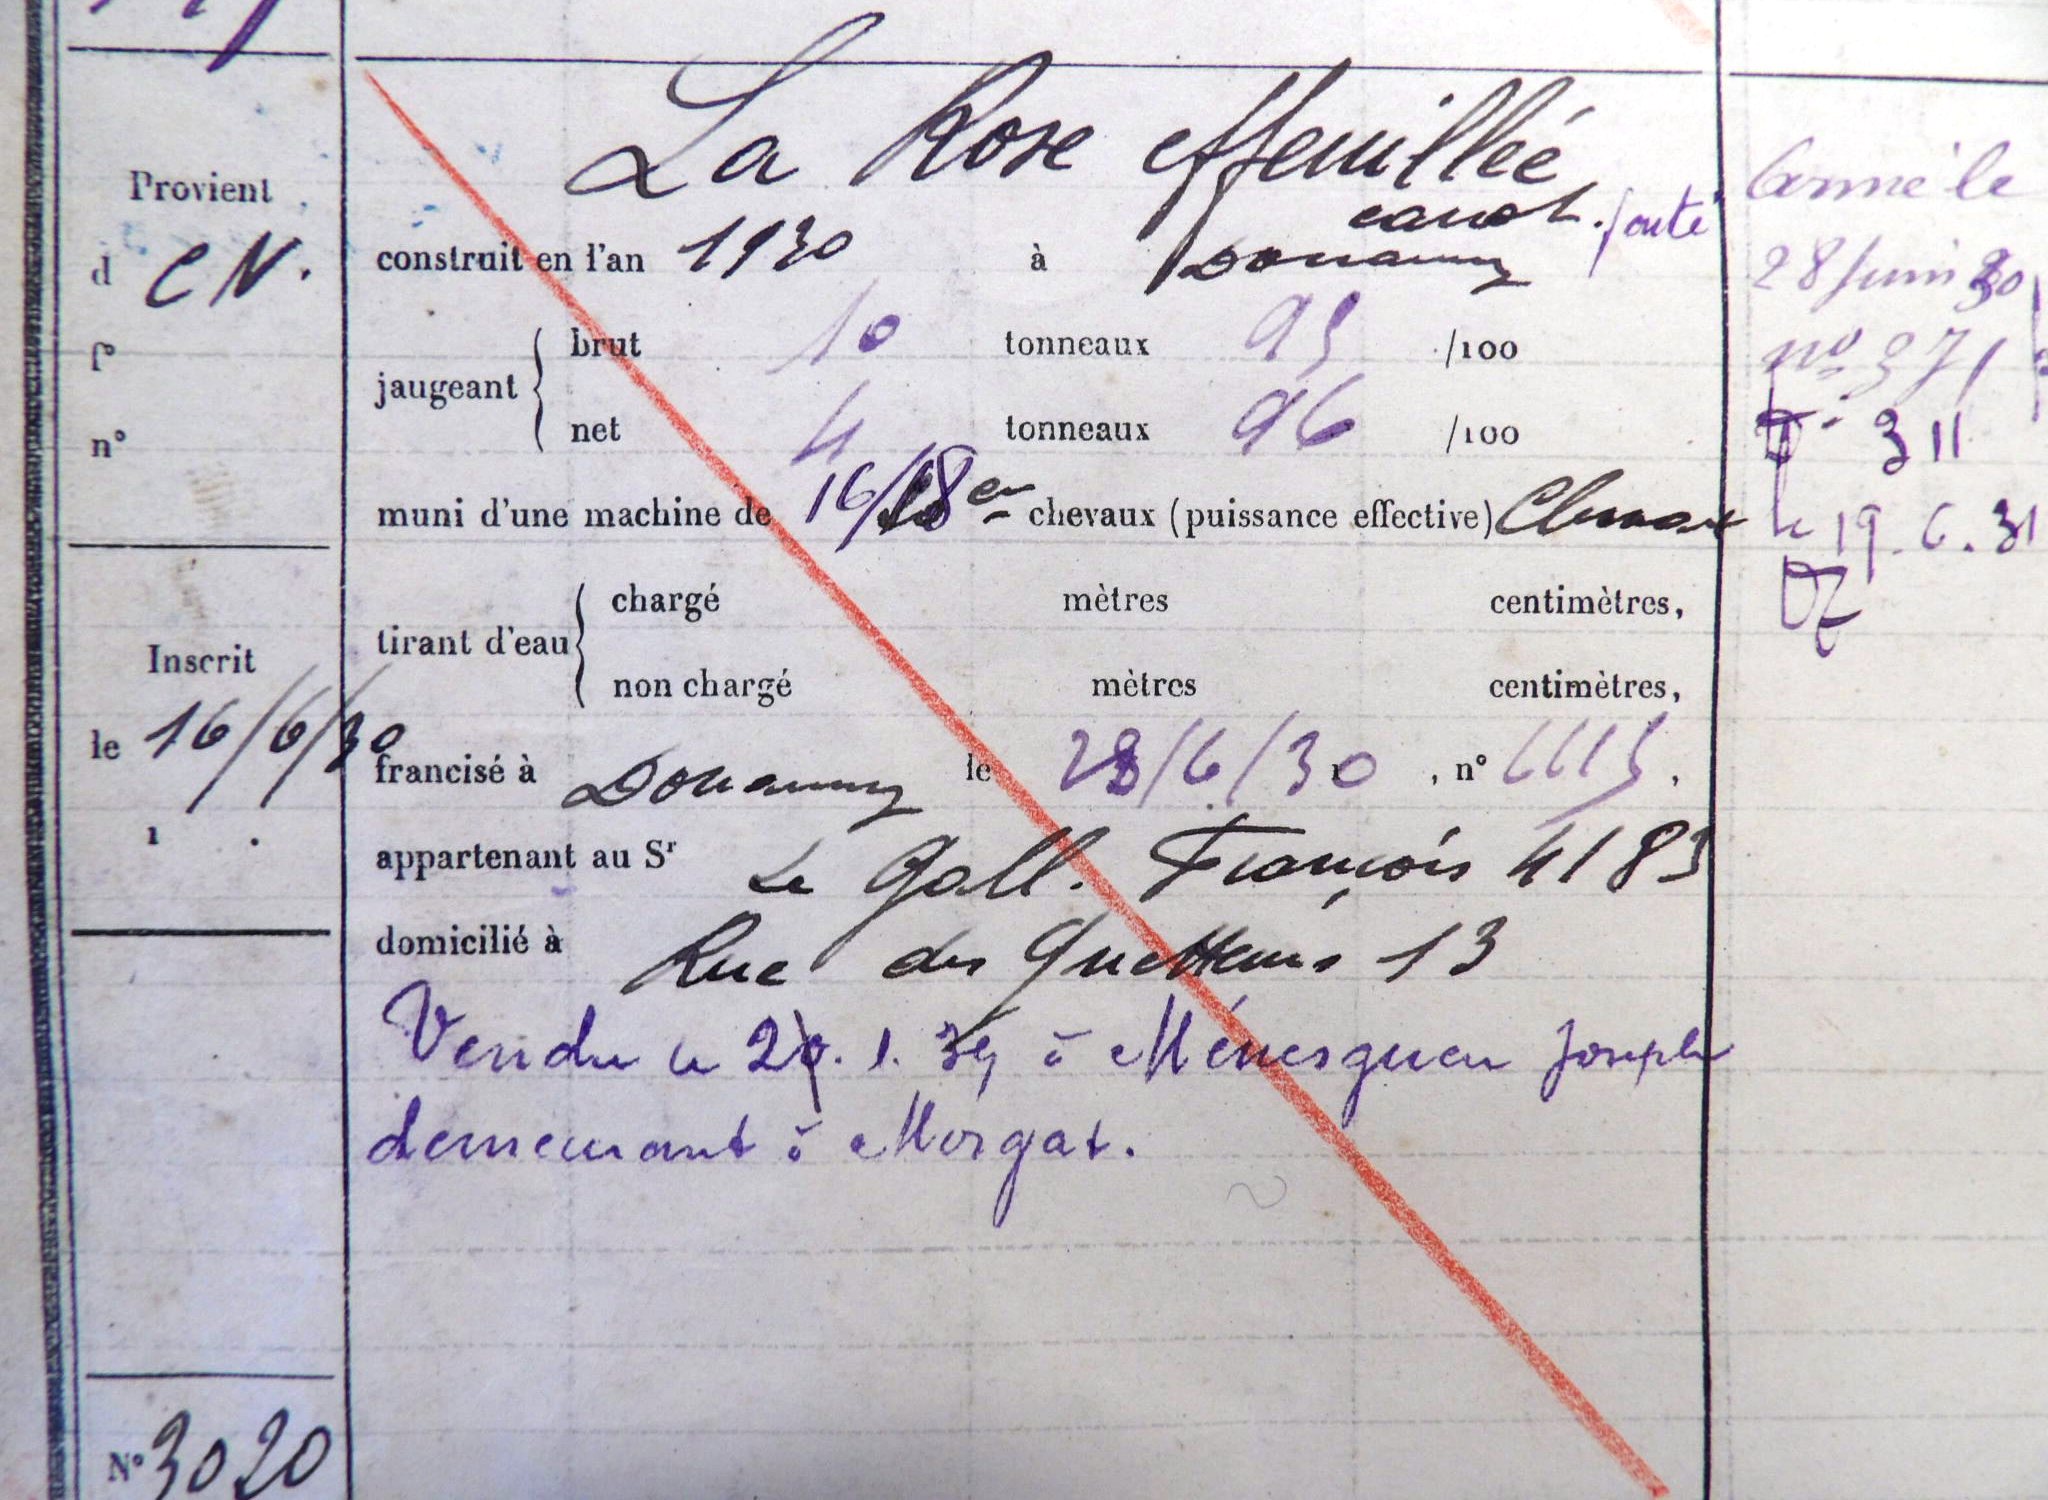 Provient
d CN.
P
n°
Inscrit
le 16/6/30
N° 3020
La Rose effeuillée
canot ponté
construit en l'an 1930 à Douarnenez
jaugeant { brut 10 tonneaux 95 /100
net 4 tonneaux 96 /100
muni d'une machine de 16/18 cv chevaux (puissance effective)
tirant d'eau { chargé mètres centimètres,
non chargé mètres centimètres,
francisé à Douarnenez le 28/6/30, n° 6615,
appartenant au Sr Le Gall. François 4183
domicilié à Rue des 13
Vendu le 1. 34 à Ménesguen Joseph
demeurant à Morgat.
Armé le
28 Juin 30
n° 371
D° 311
le 19.6.31